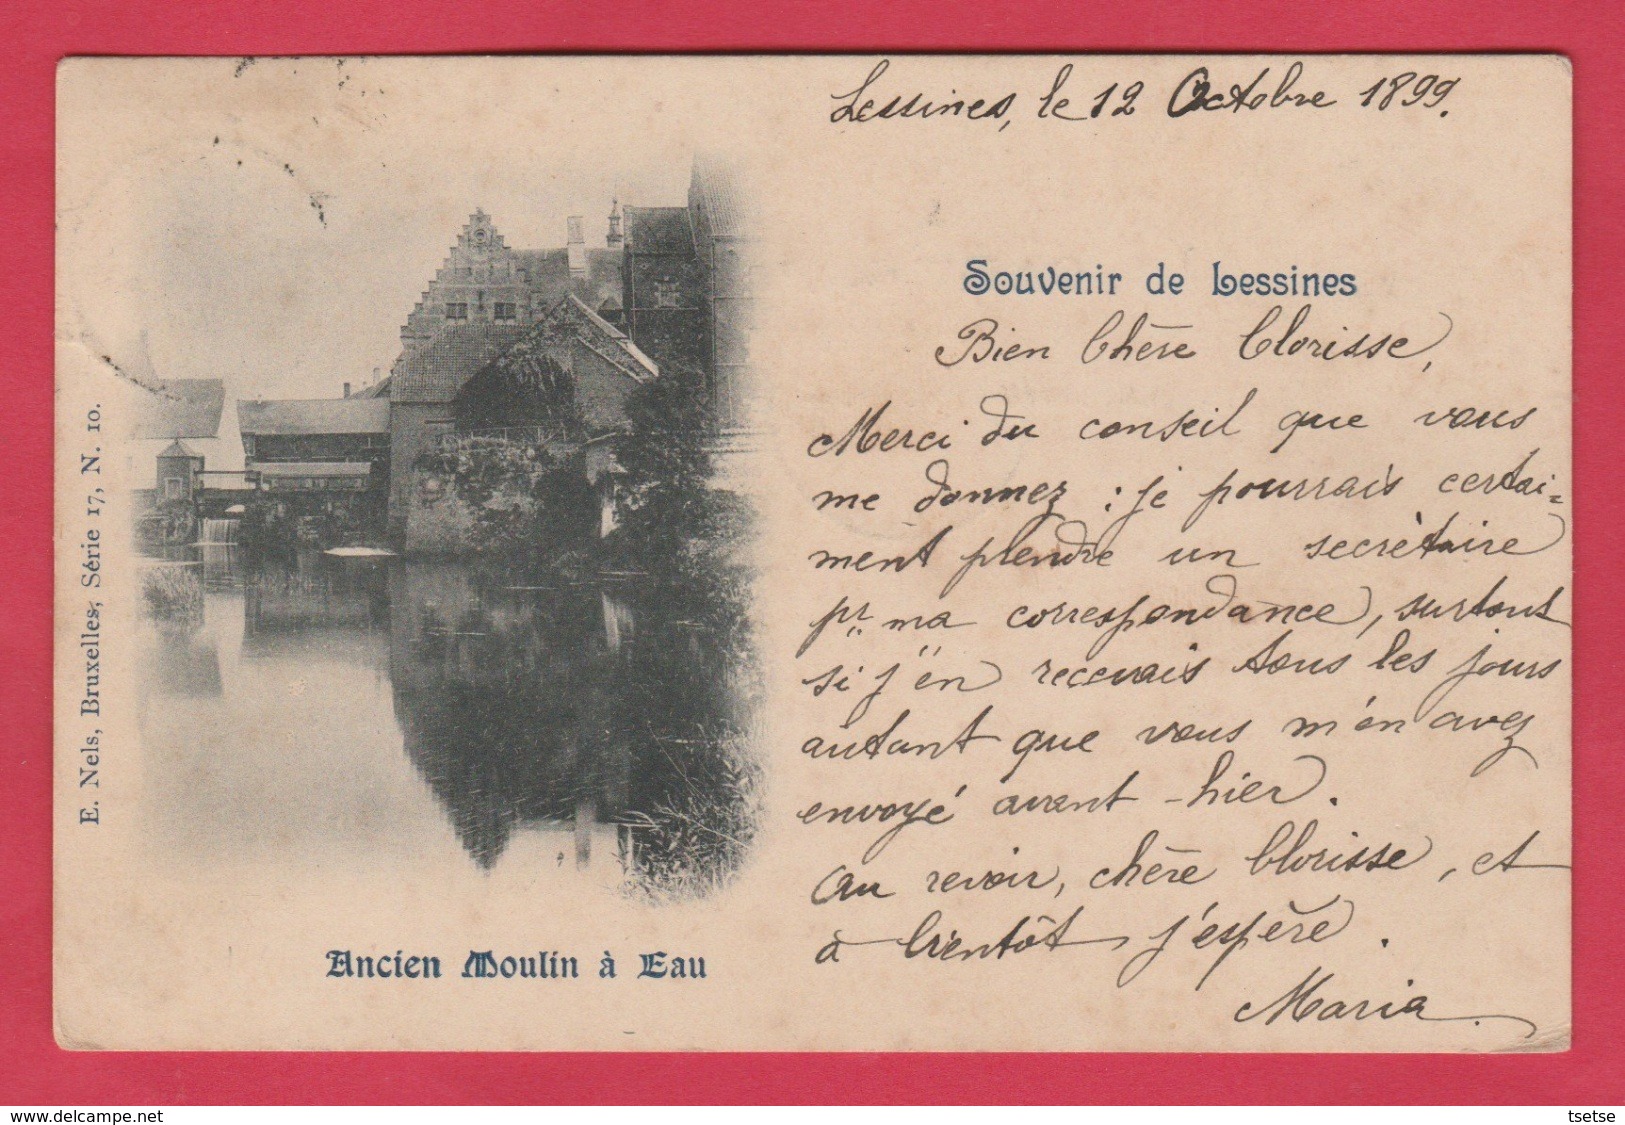 Lessines, le 12 Octobre 1899.
Souvenir de Lessines
Bien Chère Clorisse,
Merci du conseil que vous
me donnez : je pourrais certai=
ment plendre un secrétaire
pr ma correspondance, surtout
si j'en recevais tous les jours
autant que vous m'en avez
envoyé avant-hier.
Au revoir, chère Clorisse, et
à bientôt j'espère.
Maria.
Ancien Moulin à Eau
E. Nels, Bruxelles, Série 17, N. 10.
delcampe.net
tsetse